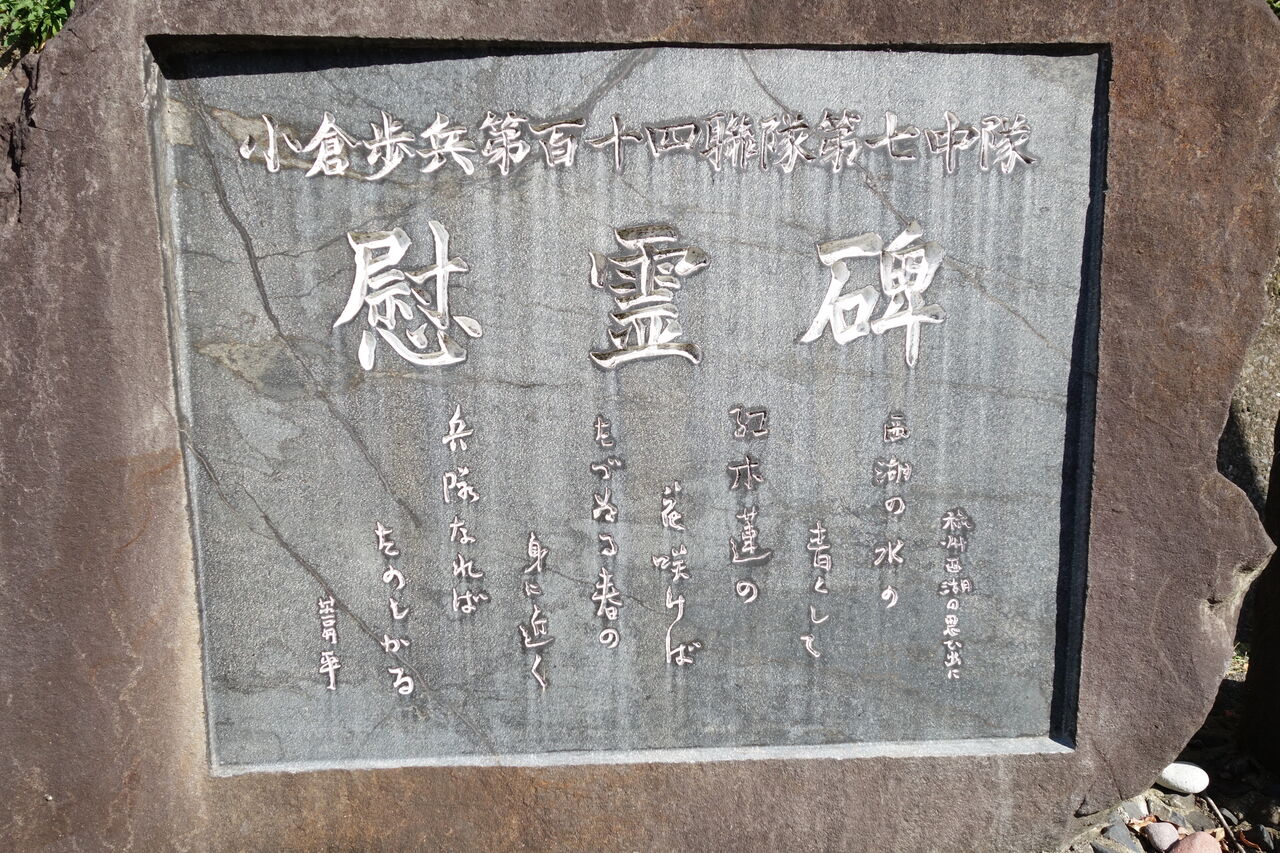 小倉歩兵第百十四聯隊第七中隊
慰霊碑
杭州西湖の思ひ出に
西湖の水の
青として
紅木蓮の
花咲けば
たづぬる春の
身に近く
兵隊なれば
たのしかる
葦平